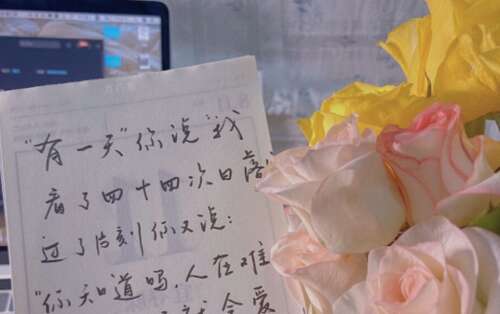 "有一天"你说"我
看了四十四次日落"
过了片刻你又说:
"你知道吗,人在难
会爱